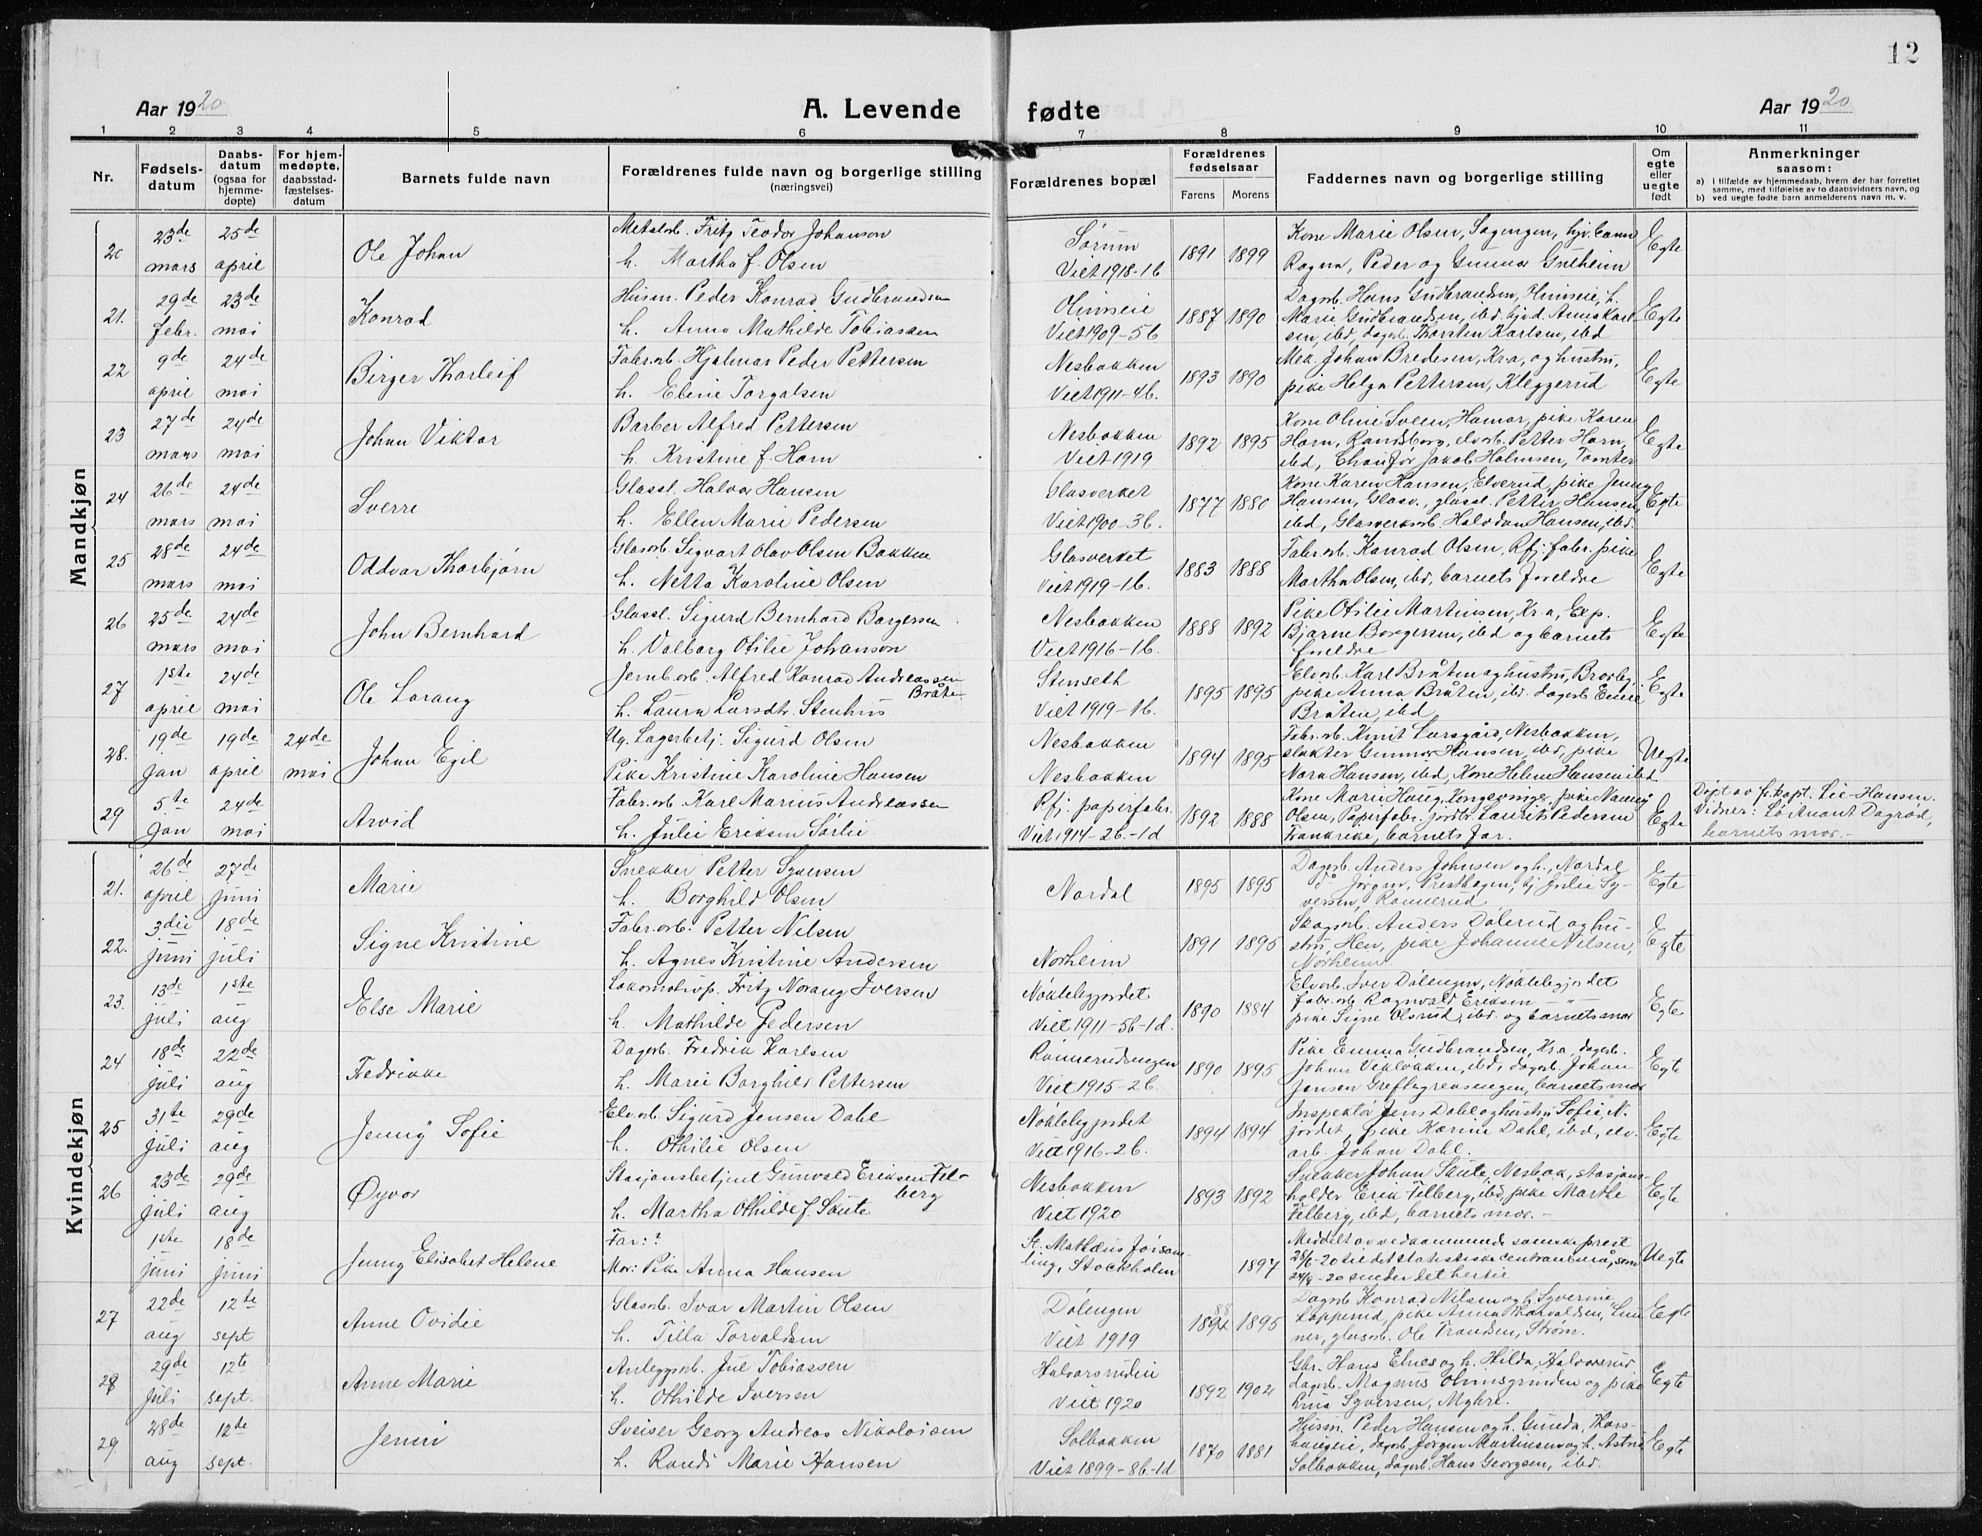 12
Aar 1920
A. Levende fødte
Aar 1920
1 2 3 4 5 6 7 8 9 10 11
Nr.
Fødsels-
datum
Daabs-
datum
(ogsaa for
hjemme-
døpte)
For hjem-
medøpte,
daabsstad-
fæstelses-
datum
Barnets fulde navn
Forældrenes fulde navn og borgerlige stilling
(næringsvei)
Forældrenes bopæl
Forældrenes
fødselsaar
Farens Morens
Faddernes navn og borgerlige stilling
Om
egte
eller
uegte
født
Anmerkninger
saasom:
a) i tilfælde av hjemmedaab, hvem der har forrettet
samme, med tilføielse av to daabsvidners navn, og
b) ved uegte fødte barn anmelderens navn m. v.
Mandkjøn
20 23de mars 25de april Ole Johan
Metalarb. Fritz Teodor Johanson
h. Martha f. Olsen
Sørum
Viet 1918-1b
1891 1899
Kone Marie Olsen, Sagengen, hjv.
Ragna, Peder og Gunnar
Egte
21. 29de febr. 23de mai Konrad
Husm. Peder Konrad Gudbrandsen
h. Anna Mathilde Tobiassen
Olimseie
Viet 1909-5b
1887 1890
Dagarb. Hans Gudbrandsen, Olimseie, h.
Marie Gudbrandsen, ibd, hjv.d. Anna Karl-
sen, ibd, dagarb. Thorsten Karlsen, ibd
Egte
22 9de april 24de mai Birger Thorleif
Fabr.arb. Hjalmar Peder Pettersen
h. Eline Torgalsen
Nesbakken
Viet 1911-4b.
1893 1890
Mek. Johan Bredesen, Kr.a, og hustru,
pike Helga Pettersen, Kleggerud
Egte
23 27de mars 24de mai Johan Viktor
Barber Alfred Pettersen
h. Kristine f. Horn
Nesbakken
Viet 1919
1892 1895
Kone Oline Sveen, Hamar, pike Karen
Horn, Randsborg, elvarb. Petter Horn,
ibd, Chauffør Jakob Halmsen, Tomter
Egte
24 26de mars 24de mai Sverre
Glassl. Halvor Hansen
h. Ellen Marie Pedersen
Glasverket
Viet 1900-3b.
1877 1880
Kone Karen Hansen, Elverud, pike Jenny
Hansen, Glasv., glassl. Petter Hansen,
ibd, Glasverksarb. Halvdan Hansen, ibd.
Egte
25 28de mars 24de mai Oddvar Thorbjørn
Glasarb. Sigvart Olav Olsen Bakken
h. Netta Karoline Olsen
Glasverket
Viet 1919-1b.
1883 1888
Fabr.arb. Konrad Olsen, Rfj. fabr. pike
Martha Olsen, ibd, barnets foreldre
Egte
26 25de mars 24de mai John Bernhard
Glassl. Sigurd Bernhard Borgersen
h. Valborg Otilie Johanson
Nesbakken
Viet 1916-1b.
1888 1892
Pike Otilie Martinsen, Kr.a, Exp.
Bjarne Borgersen, ibd og barnets
foreldre
Egte
27 1ste april 24de mai Ole Lorang
Jernb.arb. Alfred Konrad Andreassen
Bråten
h. Laura Larsdtr. Stenhus
Stenseth
Viet 1919-1b.
1895 1895
Elvarb. Karl Bråten og hustru, Brorby,
pike Anna Bråten, ibd. dagarb. Einar
Bråten, ibd
Egte
28. 19de jan 19de april 24de mai Johan Egil
Ug. Lagerbetj. Sigurd Olsen
Pike Kristine Karoline Hansen
Nesbakken
Nesbakken
1894 1895
Fabr.arb. Knut Larsgård, Nesbakken,
slakter Gunnar Hansen, ibd, pike
Nora Hansen, ibd, Kone Helene Hansen ibd
Uegte
29 5te jan 24de mai Arvid
Fabr.arb. Karl Marius Andreassen
h. Julie Eriksen Sørlie
Rfj. papirfabr.
Viet 1914-2b.-1d
1892 1888
Kone Marie Haug, Kongsvinger, pike Nanny
Olsen, Papirfabr. jordbr. Laurits Pedersen
Frankrike, barnets far.
Egte
Døpt av fr.kapt. Lie-Hansen.
Vidner: Løitnant Dagrød,
barnets mor.-
Kvindekjøn
21. 26de april 27de juni Marie
Snekker Petter Syversen
h. Borghild Olsen
Nordal
1895 1895
Dagarb. Anders Johnsen og h., Nordal
do Jørgen, Presthagen, hj. Julie Sy-
versen, Rønnerud
Egte
22. 3die juni 18de juli Signe Kristine
Fabr.arb. Petter Nilsen
h. Agnes Kristine Andersen
Norheim
1891 1895
Skogsarb. Anders Dølerud og hu-
stru, Hen, pike Johanne Nilsen,
Nørheim
Egte
23. 13de juli 1ste aug Else Marie
Lokomotivp. Fritz Norang Iversen
h. Mathilde Pedersen
Nøklebyjordet
Viet 1911-5b-1d.
1890 1884
Elvarb. Iver Dølengen, Nøklebyjordet
fabr.arb. Ragnvald Eriksen -"-
pike Signe Olsrud, ibd. og barnets mor
Egte
24 18de juli 22de aug Fredrikke
Dagarb. Fredrik Karlsen
h. Marie Borghild Pettersen
Rønnerudsengen
Viet 1915-2b.
1890 1895
Pike Emma Gudbrandsen, Kr.a, dagarb.
Johan Vikløkken, ibd, dagarb. Johan
Jensen Greftegrensengen, barnets mor
Egte
25 31te juli 29de aug Jenny Sofie
Elvarb. Sigurd Jensen Dahl
h. Othilie Olsen
Nøklebyjordet
Viet 1916-2b.
1894 1894
Inspektør Jens Dahl og hustru Sofie N.
jordet, pike Karine Dahl, ibd, elv-
arb Johan Dahl.
Egte
26 23de juli 29de aug Øyvor
Stasjonsbetjent Gunvald Eriksen Fel-
berg
h. Martha Othilde f. Skute
Nesbakken
Viet 1920
1893 1892
Snekker Johan Skute, Nesbak, stasjons-
holder Erik Felberg, ibd, pike Marthe
Felberg, ibd, barnets mor.-
Egte
1ste juni 18de juni Jenny Elisabet Helene
Far: ?
Mor: Pike Anna Hansen
St. Matteus
Stockholm
1897
Meddelt av vedkommende svenske prest
25/6-20 til det statistiske centralbureau, som
24/8-20 sender det hertil
Uegte
27 22de aug 12te sept Anne Ovidie
Glasarb. Ivar Martin Olsen
h. Tilla Torvaldsen
Dølengen
Viet 1919
88
1892 1895
Dagarb Konrad Nilsen og h. Syverine
Lopperud, pike Anna Thorvaldsen,
glasarb. Ole Trondsen, Strøm.
Egte
28 29de juli 12te sept. Anne Marie
Anleggsarb. Jul Tobiassen
h. Othilde Iversen
Halvorsrudeie
Viet 1920
1892 1902
Gbr. Hans Elnes og h. Hilda, Halvorsrud
dagarb. Magnus Olimsgrinden og pike
Lina Syversen, Myhre.
Egte
29 28de aug 12te sept. Jenni
Sveiser Georg Andreas Nikolaisen
h. Randi Marie Hansen
Solbakken
Viet 1899-8b-1d
1870 1881
Husm. Peder Hansen og h. Gunda, Thors-
haugeie, dagarb. Jørgen Martinsen og h. Astrid
Solbakken, dagarb. Hans Georgsen, ibd.
Egte